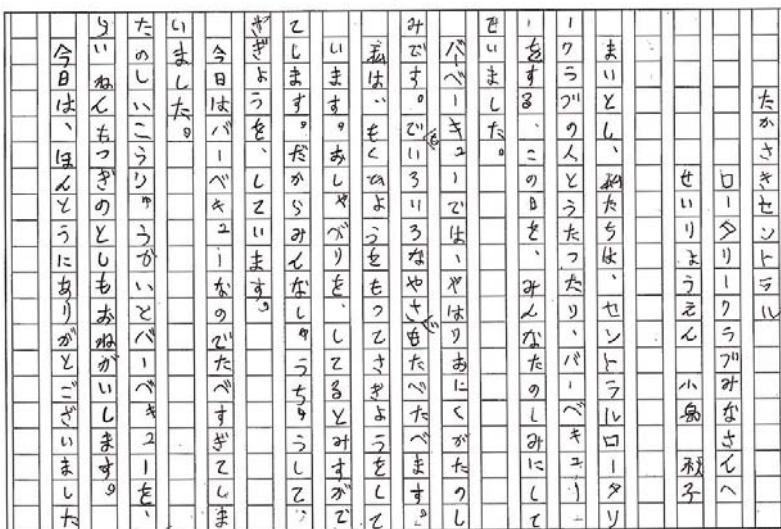 たかさきセントラル
ロータリークラブみなさんへ
せいりようえん 小泉 秋子
まいとし、私たちは、セントラルロータリ
ークラブの人とうたったり、バーベキュリ
ーをする、この日を、みんなたのしみにして
でいました。
バーベーキューでは、やはりおにくがたのし
みです。でもいろいろなやさいもたべたべます。
私は、もくひようをもってさぎようをして
います。おしゃべりを、してるとみすがで
てします。だからみんなしゅうちゅうして、
さぎようを、しています。
今日はバーベキューなのでたべすぎてしま
いました。
たのしいこうりゅうかいとバーベキューを、
らいねんもつぎのとしもおねがいします。
今日は、ほんとうにありがとございました